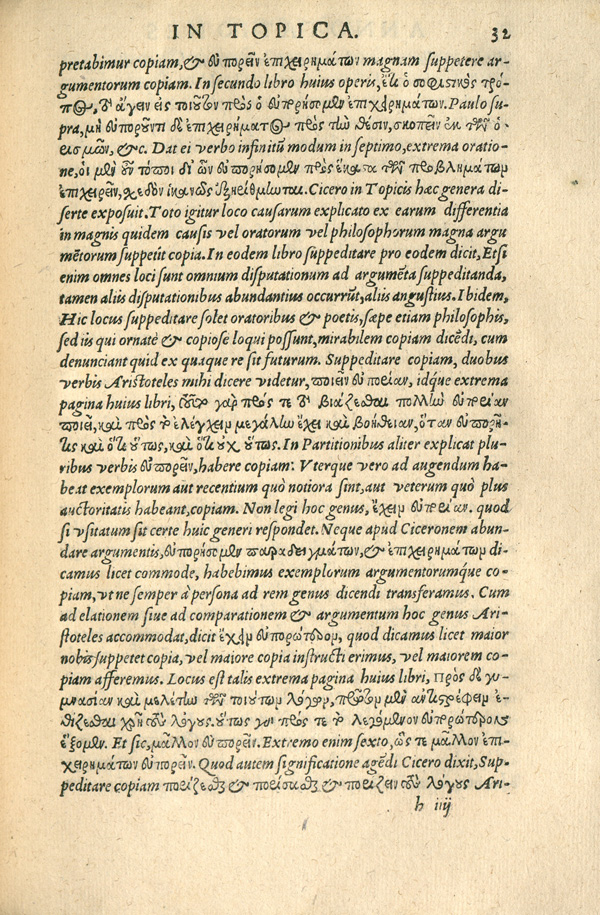 IN TOPICA. 32
pretabimur copiam, & εὐπορεῖν ἐπιχειρημάτων magnam suppetere ar-
gumentorum copiam. In secundo libro huius operis, ἔτι ὁ σοφιστικὸς τρό-
πος, τὸ ἄγειν εἰς τοιοῦτον πρὸς ὃ εὐπορήσομεν ἐπιχειρημάτων. Paulo su-
pra, μὴ εὐποροῦντι δὲ ἐπιχειρήματος πρὸς τὴν θέσιν, σκοπεῖν ἐκ τῶν ὁ-
ρισμῶν, &c. Dat ei verbo infinitũ modum in septimo, extrema oratio-
ne, οἱ μὲν οὖν τόποι δι' ὧν εὐπορήσομεν πρὸς ἕκαστα τῶν προβλημάτων
ἐπιχειρεῖν, σχεδὸν ἱκανῶς ἐξηρίθμηνται. Cicero in Topicis hæc genera di-
serte exposuit. Toto igitur loco causarum explicato ex earum differentia
in magnis quidem causis vel oratorum vel philosophorum magna argu
mẽtorum suppetit copia. In eodem libro suppeditare pro eodem dicit, Etsi
enim omnes loci sunt omnium disputationum ad argumẽta suppeditanda,
tamen aliis disputationibus abundantius occurrũt, aliis angustius. Ibidem,
Hic locus suppeditare solet oratoribus & poetis, sæpe etiam philosophis,
sed iis qui ornatè & copiose loqui possunt, mirabilem copiam dicẽdi, cum
denunciant quid ex quaque re sit futurum. Suppeditare copiam, duobus
verbis Aristoteles mihi dicere videtur, ποιεῖν εὐπορίαν, idque extrema
pagina huius libri, τοῦτο γὰρ πρός τε τὸ βιάζεσθαι πολλὴν εὐπορίαν
ποιεῖ, καὶ πρὸς τὸ ἐλέγχειν μεγάλην ἔχει καὶ βοήθειαν, ὅταν εὐπορῇ-
τις καὶ ὅτι οὕτως, καὶ ὅτι οὐχ οὕτως. In Partitionibus aliter explicat plu-
ribus verbis εὐπορεῖν, habere copiam: Vterque vero ad augendum ha-
beat exemplorum aut recentium quò notiora sint, aut veterum quò plus
auctoritatis habeant, copiam. Non legi hoc genus, ἔχειν εὐπορίαν. quod
si vsitatum sit certe huic generi respondet. Neque apud Ciceronem abun-
dare argumentis, εὐπορήσομεν παραδειγμάτων, & ἐπιχειρημάτων di-
camus licet commode, habebimus exemplorum argumentorumque co-
piam, vt ne semper à persona ad rem genus dicendi transferamus. Cum
ad elationem siue ad comparationem & argumentum hoc genus Ari-
stoteles accommodat, dicit ἔχειν εὐπορώτερον, quod dicamus licet maior
nobis suppetet copia, vel maiore copia instructi erimus, vel maiorem co-
piam afferemus. Locus est talis extrema pagina huius libri, Πρὸς δὲ γυ-
μνασίαν καὶ μελέτην τῶν τοιούτων λόγων, πρῶτον μὲν ἀντιστρέφειν ἐ-
θίζεσθαι χρὴ τοὺς λόγους. οὕτως γὰρ πρός τε τὸ λεγόμενον εὐπορωτέρως
ἕξομεν. Et sic, μᾶλλον εὐπορεῖν. Extremo enim sexto, ὥς τε μᾶλλον ἐπι-
χειρημάτων εὐπορεῖν. Quod autem significatione agẽdi Cicero dixit, Sup-
peditare copiam πορίζεσθαι & πορίσασθαι & πορίζειν τοὺς λόγους Ari-
h iiij